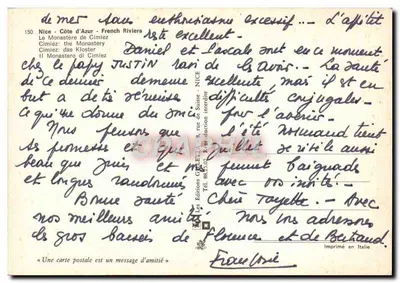 de mer sans enthousiasme excessif... L'appétit
150 Nice - Côte d'Azur - French Riviera
Le Monastère de Cimiez
Cimiez: the Monastery
Cimiez: das Kloster
Il Monastero di Cimiez
reste excellent.
Daniel et Pascale sont en ce moment
chez le papy JUSTIN ravi de les avoir. La santé
de ce dernier demeure excellente mais il est en
but à de très sérieuses difficultés conjugales.
Ce qui me donne du souci pour l'avenir.
Nous pensons que l'été normand tient
ses promesses et que juillet se révèle aussi
beau que Juin et permet baignades
et longues randonnées avec vos invités.
Bonne santé Chère Tayette. Avec
nos meilleures amitiés nous vous adressons
les gros baisers de Florence et de Bertrand.
Imprimé en Italie
"Une carte postale est un message d'amitié"